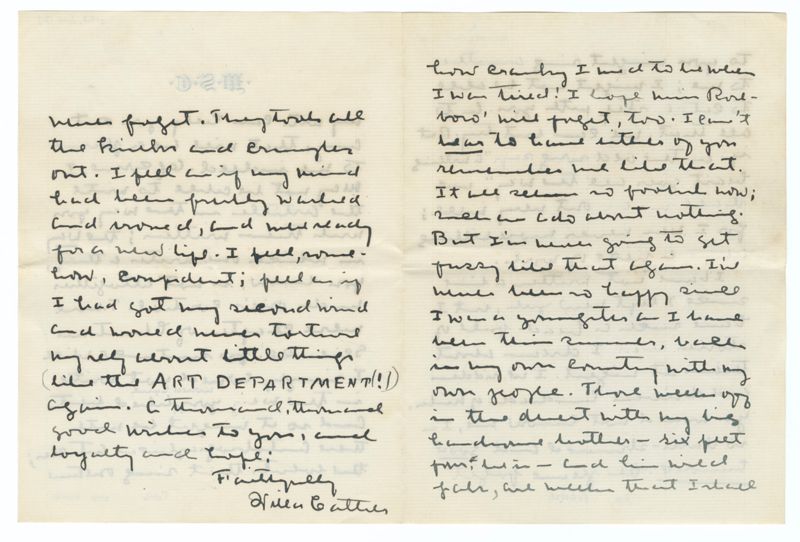 how cranky I used to be when
I was tired! I hope miss Rose-
boro' will forget, too. I can't
bear to have either of you
remember me like that.
It all seems so foolish now;
such an ado about nothing.
But I'm never going to get
fussy like that again. I've
never been so happy since
I was a youngster as I have
been this summer, back
in my own country with my
own people. Those weeks off
in the desert with my big
handsome brother — six feet
four, he is — and his wild
pals, are weeks that I shall
never forget. They took all
the kinks and crumples
out. I feel as if my mind
had been freshly washed
and ironed, and were ready
for a new life. I feel, some-
how, confident; feel as if
I had got my second wind
and would never torture
myself about little things
(like the ART DEPARTMENT!)
again. A thousand, thousand
good wishes to you, and
loyalty and hope;
Faithfully
Willa Cather